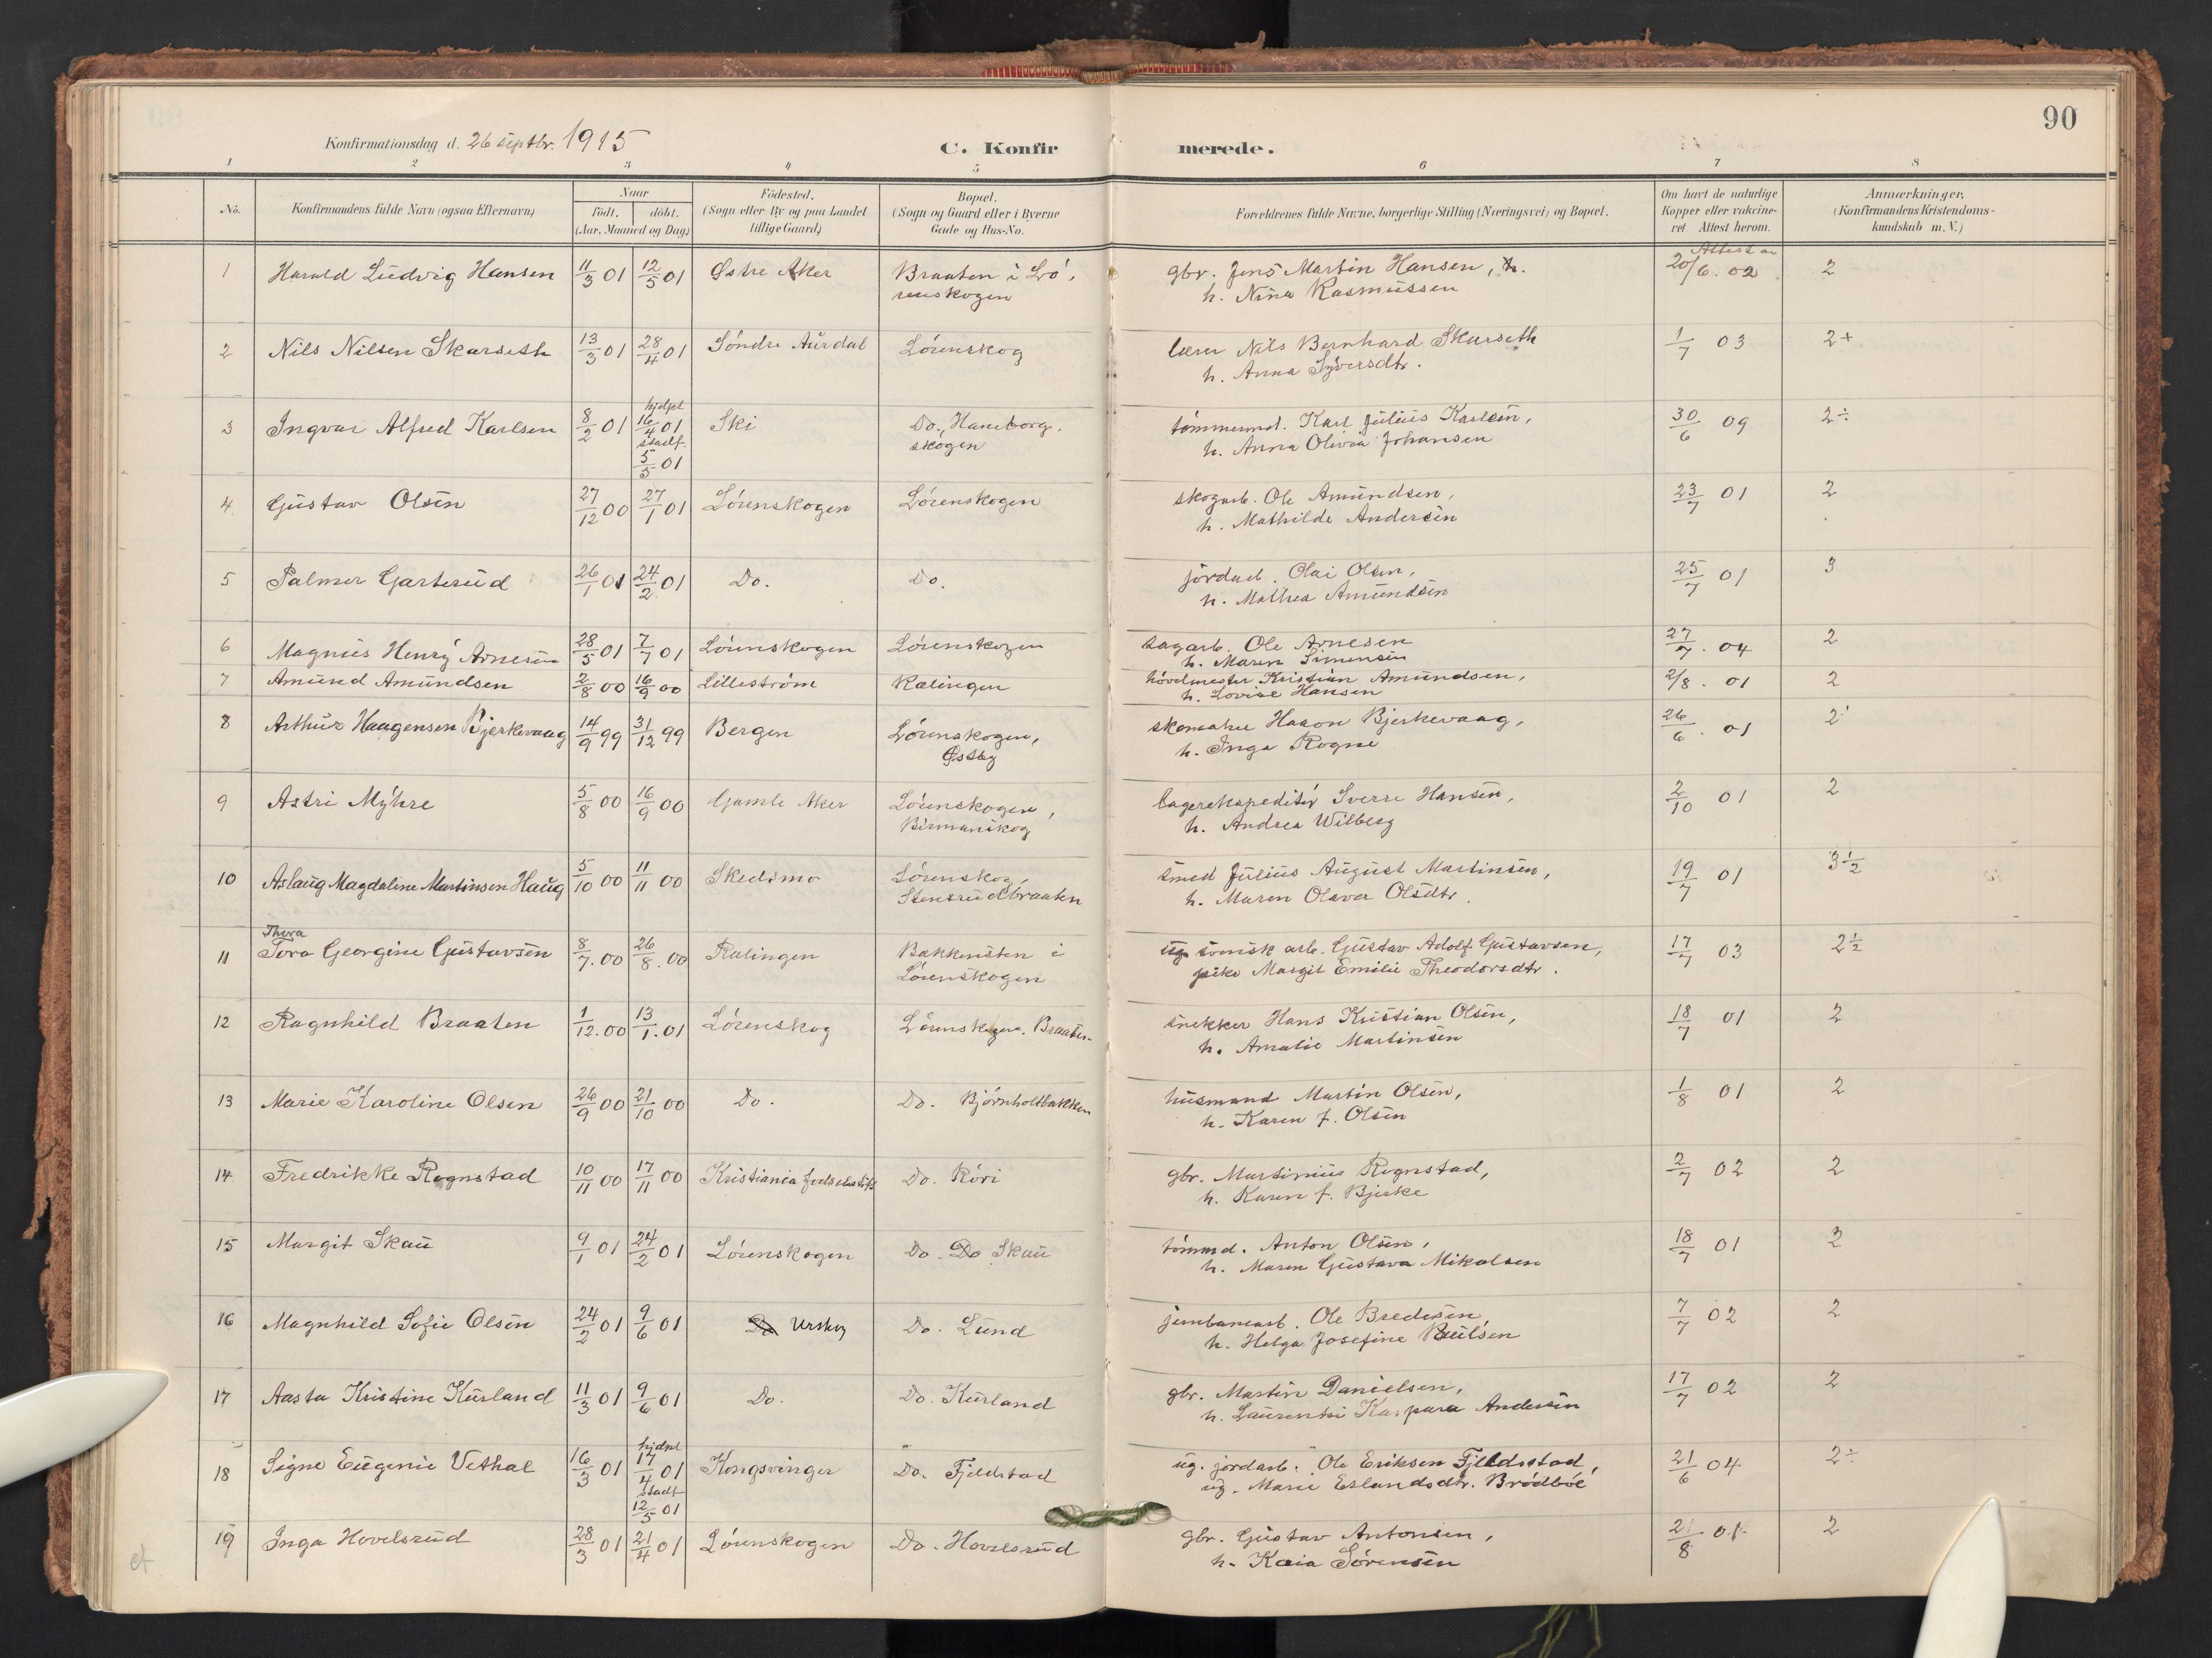 90
Konfirmationsdag d. 26 septbr. 1915
C. Konfirmerede.
1 2 3 4 5 6 7 8
No. | Konfirmandens fulde Navn (ogsaa Efternavn) | Naar födt. döbt. (Aar, Maaned og Dag) | Födested. (Sogn eller By og paa Landet tillige Gaard) | Bopæl. (Sogn og Gaard eller i Byerne Gade og Hus-No. | Forældrenes fulde Navne, borgerlige Stilling (Næringsvei) og Bopæl. | Om havt de naturlige Kopper eller vakcineret Attest herom. | Anmærkninger, (Konfirmandens Kristendomskundskab m. V.)
1 Harald Ludvig Hansen 11/3 01 12/5 01 Østre Aker Braaten i Lørenskogen gbr. Jens Martin Hansen, h. Nina Rasmussen Attest an 20/6. 02 2
2 Nils Nilsen Skarseth 13/3 01 28/4 01 Søndre Aurdal Lørenskog lærer Nils Bernhard Skarseth h. Anna Syversdtr. 1/7 03 2+
3 Ingvar Alfred Karlsen 8/2 01 hjdpt 16/4 01 stadf. 5/5 01 Ski Do., Hamborgskogen tømmermd. Karl Julius Karlsen, h. Anna Olivia Johansen 30/6 09 2÷
4 Gustav Olsen 27/12 00 27/1 01 Lørenskogen Lørenskogen skogarb. Ole Amundsen, h. Mathilde Andersen 23/7 01 2
5 Palmer Garterud 26/1 01 24/2 01 Do. Do. jordarb. Olai Olsen, h. Mathea Amundsen 25/7 01 3
6 Magnus Henry Arnesen 28/5 01 7/7 01 Lørenskogen Lørenskogen sagarb. Ole Arnesen h. Maren Simensen 27/7. 04 2
7 Amund Amundsen 2/8 00 16/9 00 Lilleström Rælingen høvelmester Kristian Amundsen, h. Lovise Hansen 2/8. 01 2
8 Arthur Haagensen Bjerkevaag 14/9 99 31/12 99 Bergen Lørenskogen, Østby skomaker Haaon Bjerkevaag, h. Inga Rogne 26/6. 01 2
9 Astri Myhre 5/8 00 16/9 00 Gamle Aker Lørenskogen, Birmanskog lagerekspeditør Sverre Hansen, h. Andrea Wilberg 2/10 01 2
10 Aslaug Magdalene Martinsen Haug 5/10 00 11/11 00 Skedsmo Lørenskog, Stensrudbraaten smed Julius August Martinsen, h. Maren Olava Olsdtr. 19/7 01 3½
11 Thora Tora Georgine Gustavsen 8/7. 00 26/8. 00 Rælingen Bakkensten i Lørenskogen ug. svensk arb. Gustav Adolf Gustavsen, pike Margit Emilie Theodorsdtr. 17/7 03 2½
12 Ragnhild Braaten 1/12. 00 13/1. 01 Lørenskog Lørenskogen. Braaten snekker Hans Kristian Olsen, h. Amalie Martinsen 18/7 01 2
13 Marie Karoline Olsen 26/9 00 21/10 00 Do. Do. Bjørnholtbakken husmand Martin Olsen, h. Karen f. Olsen 1/8 01 2
14 Fredrikke Rognstad 10/11 00 17/11 00 Kristiania fødselsstift Do. Röri gbr. Martinius Rognstad, h. Karen f. Bjerke 2/7 02 2
15 Margit Skau 9/1 01 24/2 01 Lørenskogen Do. Do Skau tømmd. Anton Olsen, h. Maren Gustava Mikalsen 18/7 01 2
16 Magnhild Sofie Olsen 24/2 01 9/6 01 Do Urskog Do. Lund jernbanearb. Ole Bredesen, h. Helga Josefine Paulsen 7/7 02 2
17 Aasta Kristine Kurland 11/3 01 9/6 01 Do. Do. Kurland gbr. Martin Danielsen, h. Laurentse Kaspara Andersen 17/7 02 2
18 Signe Eugenie Vethal 16/3 01 hjdpt 17/4 01 stadf. 12/5 01 Kongsvinger Do. Fjeldstad ug. jordarb. Ole Eriksen Fjeldstad, ug. Marie Erlandsdtr. Brødbøl 21/6 04 2÷
19 Inga Hovelsrud 28/3 01 21/4 01 Lørenskogen Do. Hovelsrud gbr. Gustav Antonsen, h. Kaia Sørensen 21/8 01. 2